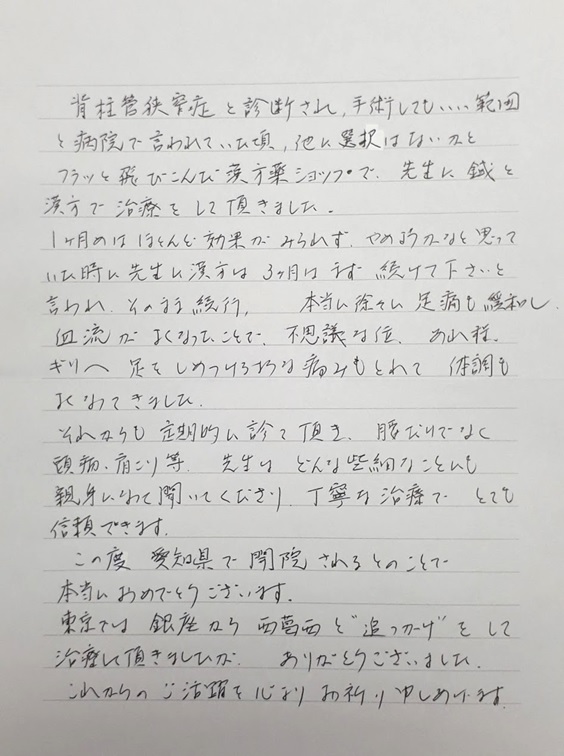 脊柱管狭窄症と診断され、手術してもいい範囲
と病院で言われていた頃、他に選択はないかと
フラッと飛びこんだ漢方薬ショップで、先生に鍼と
漢方で治療をして頂きました。
1ヶ月めはほとんど効果がみられず、やめようかなと思って
いた時に先生に漢方は3ヶ月はまず続けて下さいと
言われ、そのまま続行、本当に徐々に足痛も緩和し
血流がよくなったことで、不思議な位、あれ程
ギリへ足をしめつけるような痛みもとれて体調も
よくなってきました。
それからも定期的に診て頂き、腰だけでなく
頭痛、肩こり等、先生はどんな些細なことにも
親身になって聞いてくださり、丁寧な治療でとても
信頼できます。
この度愛知県で開院されるとのことで
本当におめでとうございます。
東京では銀座から西葛西と"追っかけ"をして
治療して頂きましたが、ありがとうございました。
これからのご活躍を心よりお祈り申しあげます。